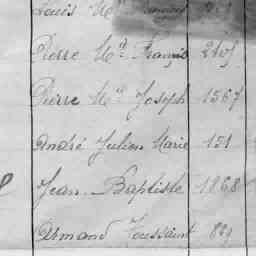 Louis M
Pierre Md. François 2105
Pierre Md. Joseph 1567
André Julien Marie 151
Jean-Baptiste 1868
Armand Toussaint 829